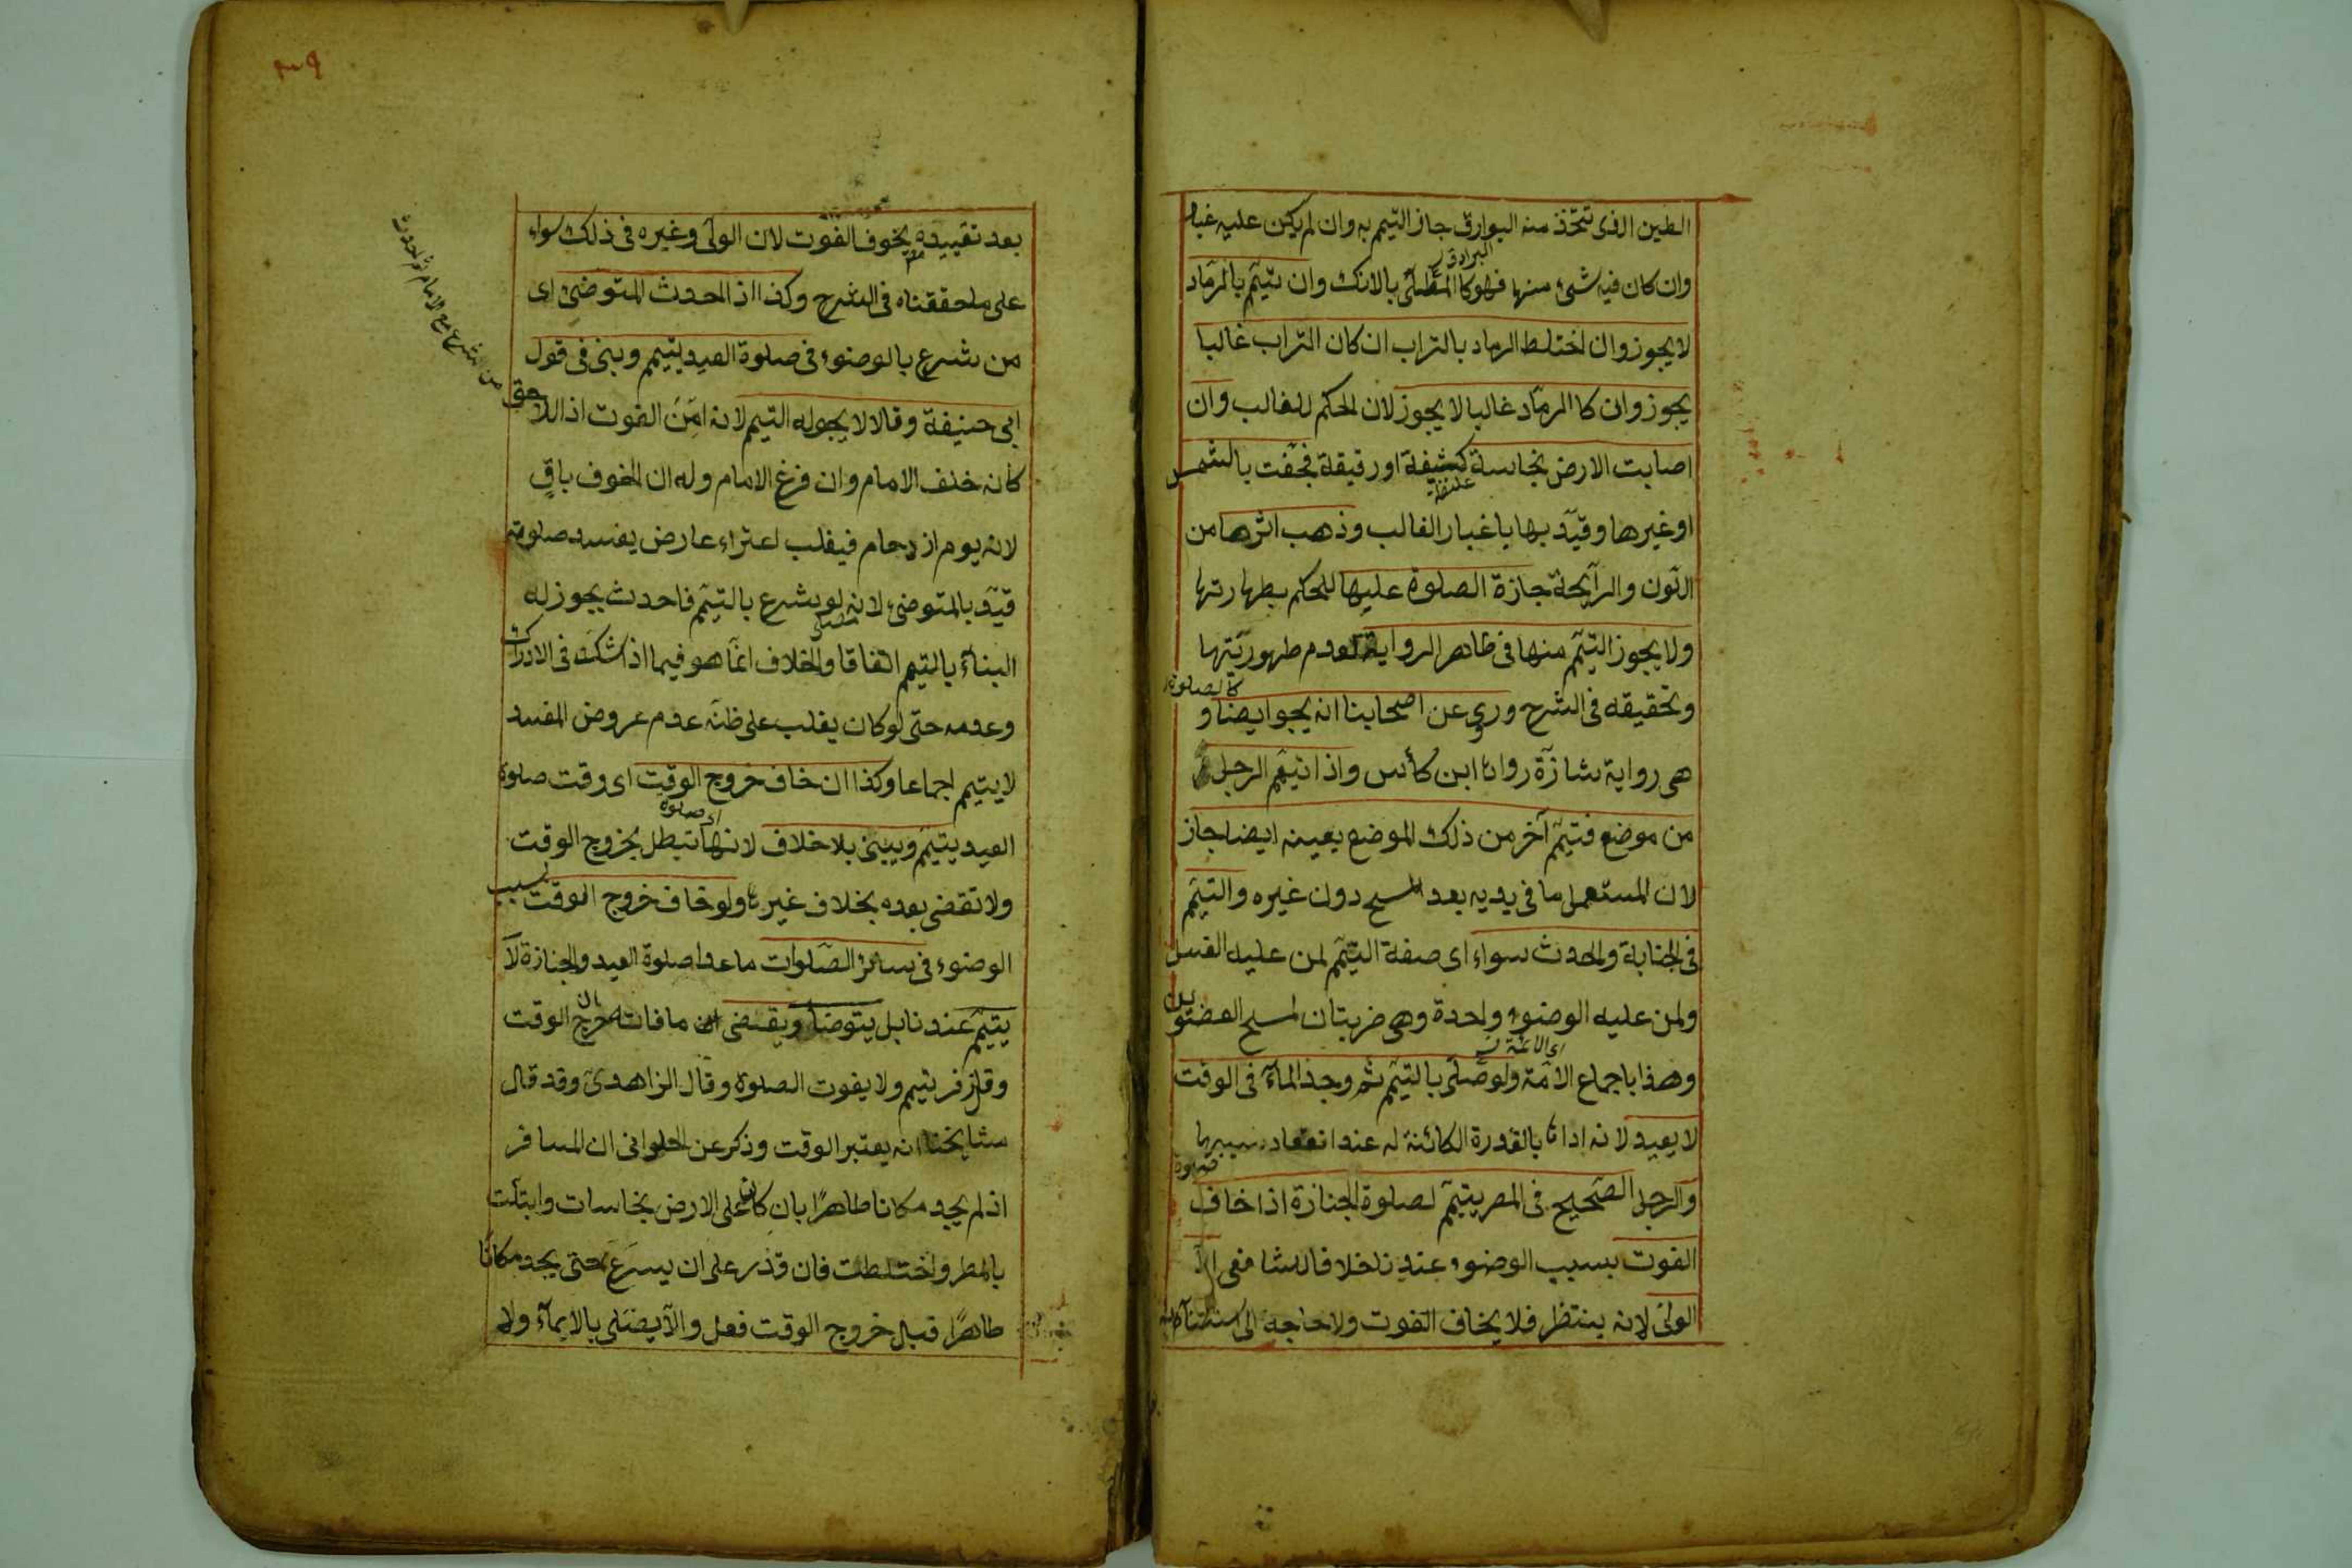 الطين الذى تتخذ منه البوارق جاز التيمم به وان لم يكن عليه غبار
البرادق
وان كان فيه شئ منها فهو كالمطلى بالانك وان تيمم بالرماد
لا يجوز وان اختلط الرماد بالتراب ان كان التراب غالبا
يجوز وان كا الرماد غالبا لا يجوز لان الحكم للغالب وان
اصابت الارض نجاسة كثيفة او رقيقة فجفت بالشمس
غليظة
او غيرها وقيد بها باغبار الغالب وذهب اثرها من
اللون والرآيحة جازة الصلوة عليها للحكم بطهارتها
ولا يجوز التيمم منها فى ظاهر الرواية لعدم طهوريتها
كالصلوة
وتحقيقه فى الشرح وروى عن اصحابنا انه يجو ايضا و
هى رواية شازة رواها ابن كأس واذا تيمم الرجل
من موضع فتيمم آخر من ذلك الموضع بعينه ايضا جاز
لان المستعمل ما فى يديه بعد المسح دون غيره والتيمم
فى الجنابة والحدث سواء اى صفة التيمم لمن عليه الغسل
ولمن عليه الوضوء واحدة وهى ضربتان لمسح العضوين
اى الائمة
وهذا باجماع الامة ولو صلى بالتيمم ثم وجد المآء فى الوقت
لا يعيد لانه اداها بالقدرة الكائنة له عند انعقاد سببها
صلوة
والرجل الصحيح فى المصر يتيمم لصلوة الجنازة اذا خاف
الفوت بسبب الوضوء عندنا خلافا للشافعى الا
الولى لانه ينتظر فلا يخاف الفوت ولا حاجة الى استثنآئه
بعد تقييده بخوف الفوت لان الولى وغيره فى ذلك سواء
على ما حققناه فى الشرح وكذا اذا المحدث المتوضئ اى
من شرع بالوضوء فى صلوة العيد يتيمم ويبنى فى قول
ابى حنيفة وقالا لا يجوله التيمم لانه امن الفوت اذ اللاحق
من شرع مع الامام ثم احدث
كانه خلف الامام وان فرغ الامام وله ان الخوف باق
لانه يوم ازدحام فيغلب اعتراء عارض يفسد صلوته
قيد بالمتوضئ لانه لو شرع بالتيمم فاحدث يجوز له
البنآء بالتيمم اتفاقا والخلاف انما هو فيما اذا شك فى الادراك
وعدمه حتى لو كان يغلب على ظنه عدم عروض المفسد
لا يتيمم اجماعا وكذا ان خاف خروج الوقت اى وقت صلوة
اى صلوة
العيد يتيمم ويبنى بلا خلاف لانها تبطل بخروج الوقت
ولا تقضى بعده بخلاف غيرها ولو خاف خروج الوقت بسبب
الوضوء فى سائر الصلوات ما عدا صلوة العيد والجنازة لا
يتيمم عندنا بل يتوضأ ويقضى ما فاته بان خرج الوقت
وقال زفر يتيمم ولا يفوت الصلوة وقال الزاهدى وقد قال
مشايخنا انه يعتبر الوقت وذكر عن الحلوانى ان المسافر
اذ لم يجد مكانا طاهرا بان كان على الارض نجاسات وابتلت
بالمطر واختلطت فان قدر على ان يسرع حتى يجد مكانا
طاهرا قبل خروج الوقت فعل والا يصلى بالايمآء ولا